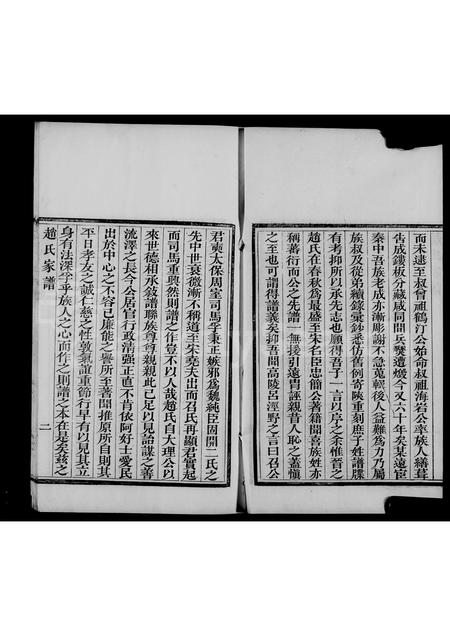 而未逮至叔曾祖鶴汀公始命叔祖海岩公率族人繕葺
告成鏤板分藏咸同間兵燹遭燬今又六十年矣某遠宦
秦中吾族老成亦漸彫謝不急蒐輯後人益難為力乃屬
族叔及從弟續錄彙鈔悉仿舊例寄陝重刻庶于姓譜牒
有考抑所以承先志也願得吾子一言以序之余惟晉之
趙氏在春秋為最盛至宋名臣忠簡公著籍聞喜族姓亦
稱蕃衍而公之先譜一無援引遠冑誣親昔人恥之蓋慎
之至也可謂得譜義矣抑吾聞高陵呂涇野之言曰召公
君奭太保周室司馬孚秉正嫉邪為魏純臣固開二氏之
先中世衰微漸不稱道至宋堯夫出而召氏再顯君實起
而司馬重興然則譜之作豈不以人哉趙氏自大理公以
來世德相承敘譜聯族尊尊親親此已足以見詒謀之善
流澤之長今公居官行政清强正直不肯依阿好士愛民
出於中心之不容已廉能之譽所至著聞推原所自則其
平日孝友之誠仁慈之性敦氣誼重節行早有以見其立
身有法深孚乎族人之心而作之則譜之本在是矣茲之
趙氏家譜
二